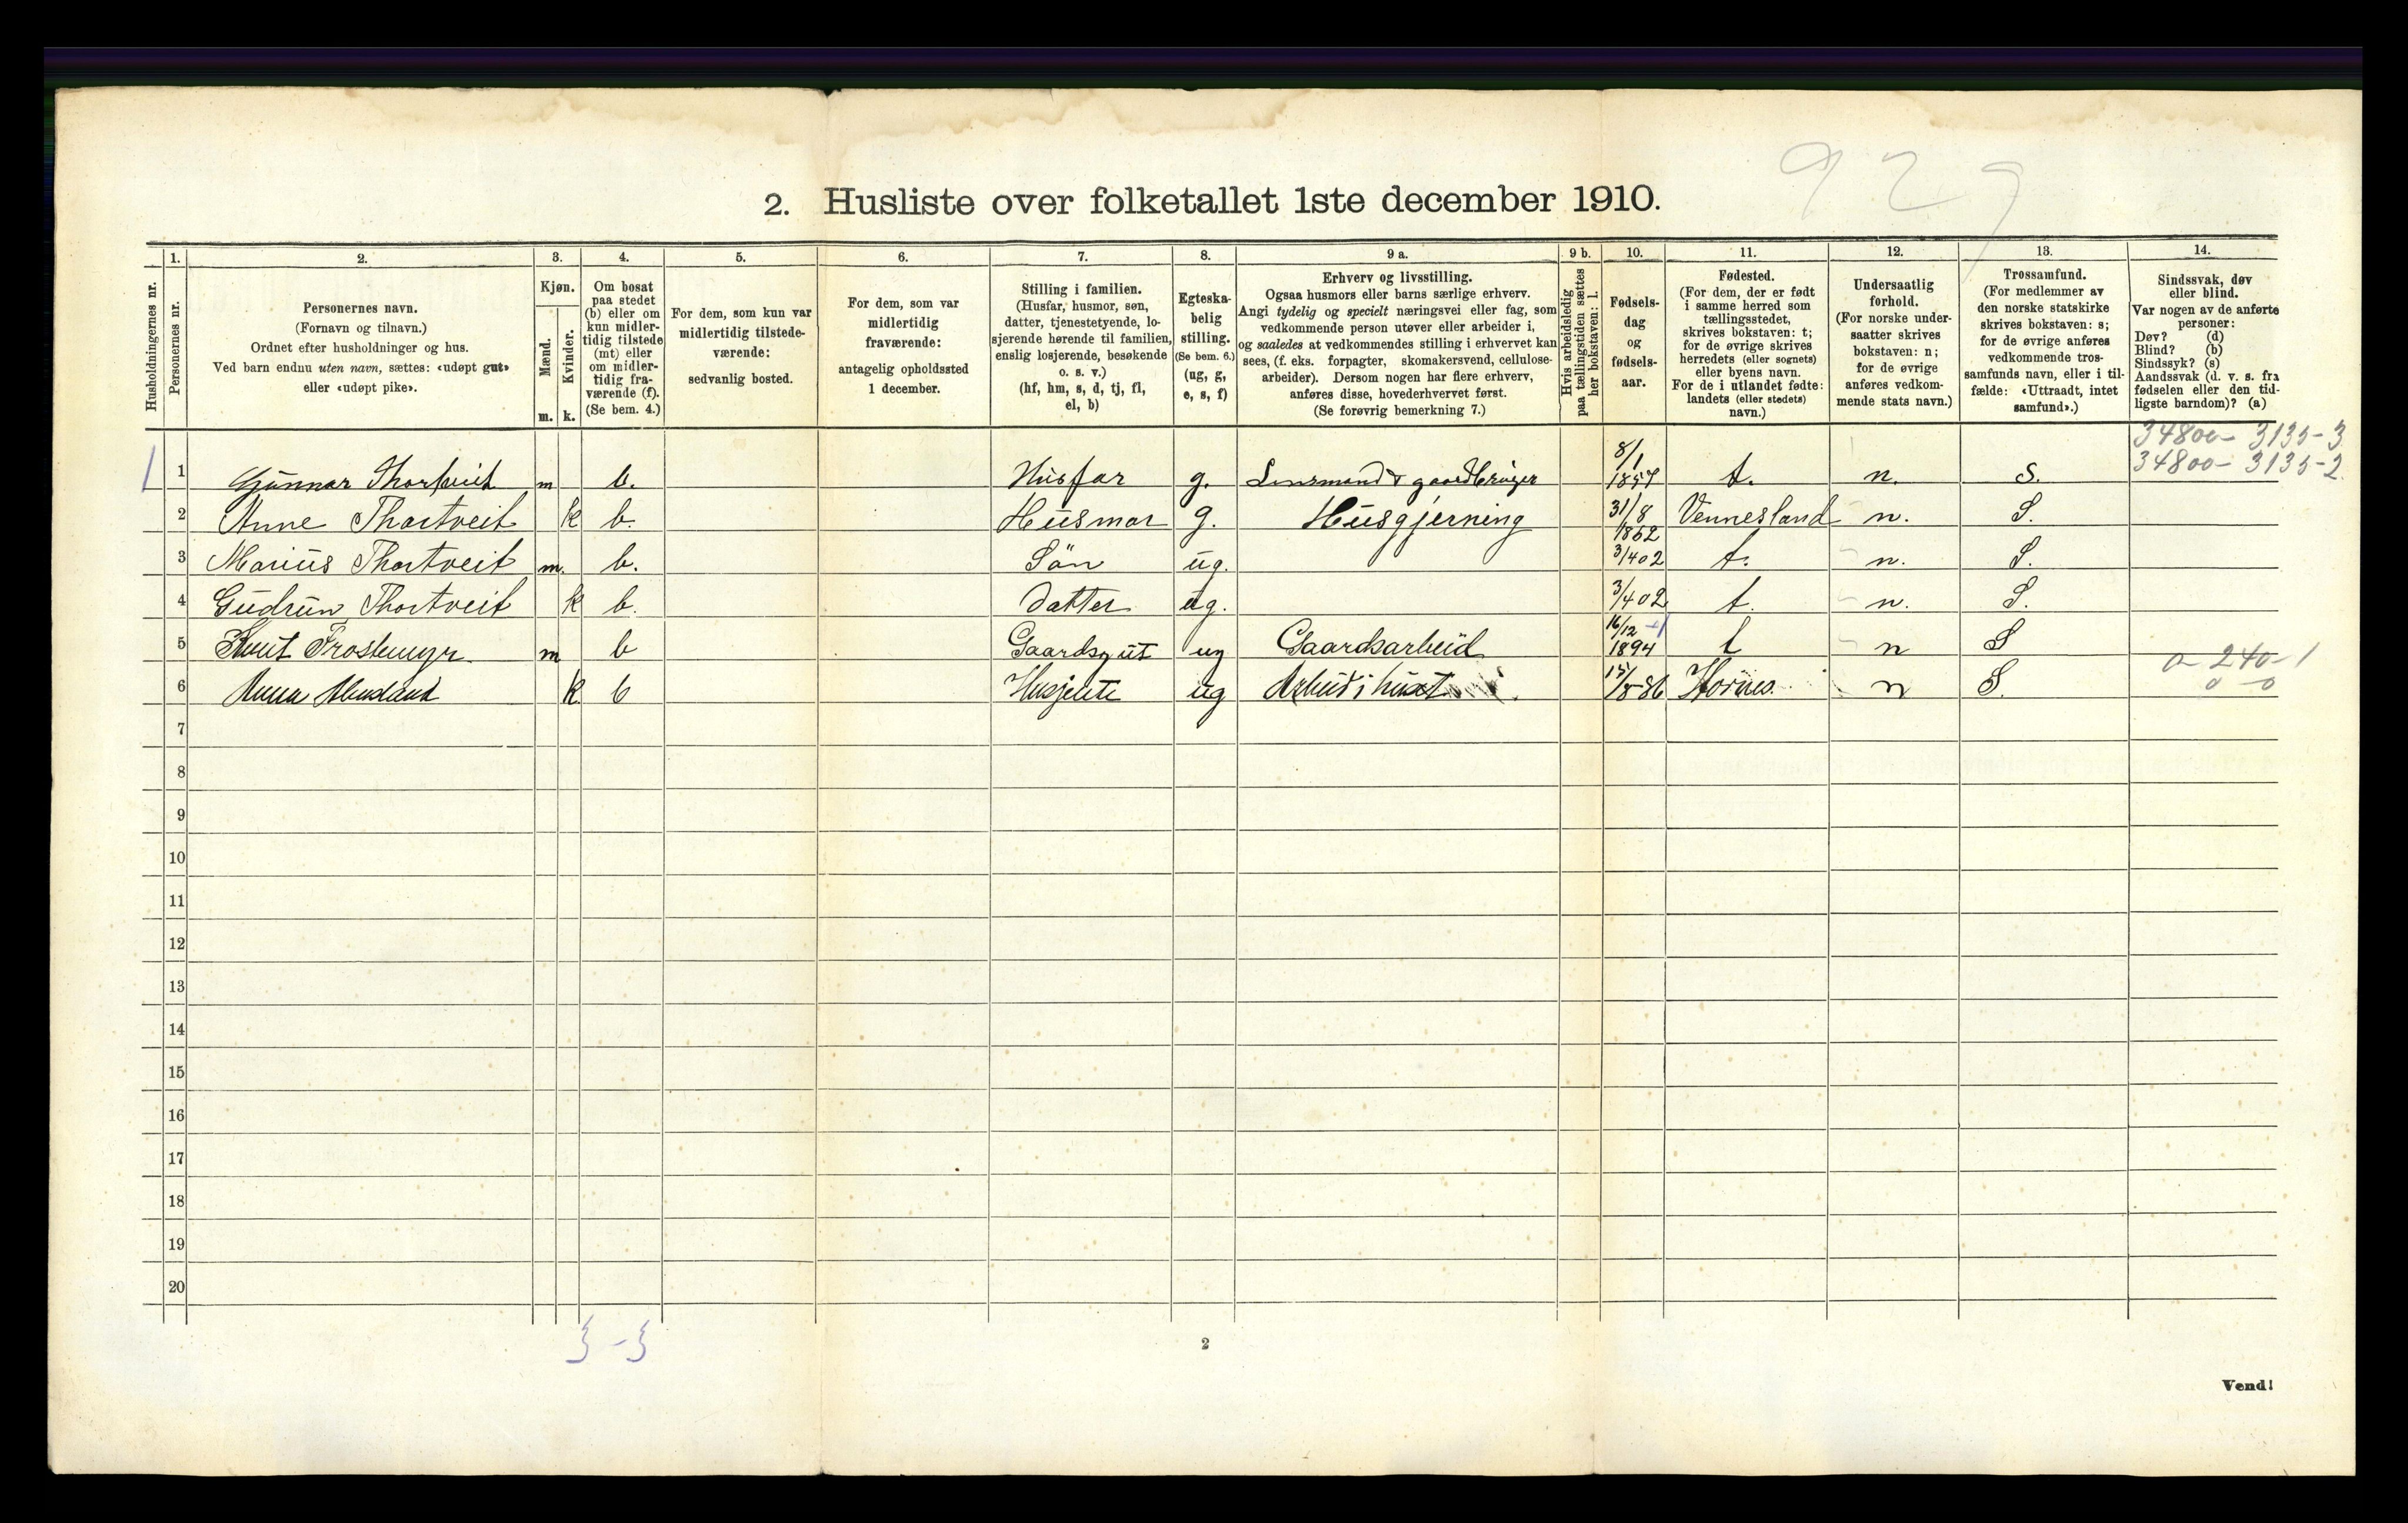 929
2. Husliste over folketallet 1ste december 1910.
Husholdningernes nr.
1.
Personernes nr.
2.
Personernes navn.
(Fornavn og tilnavn.)
Ordnet efter husholdninger og hus.
Ved barn endnu uten navn, sættes: «udøpt gut»
eller «udøpt pike».
3.
Kjøn.
Mænd.
Kvinder.
m. k.
4.
Om bosat
paa stedet
(b) eller om
kun midler-
tidig tilstede
(mt) eller
om midler-
tidig fra-
værende (f).
(Se bem. 4.)
5.
For dem, som kun var
midlertidig tilstede-
værende:
sedvanlig bosted.
6.
For dem, som var
midlertidig
fraværende:
antagelig opholdssted
1 december.
7.
Stilling i familien.
(Husfar, husmor, søn,
datter, tjenestetyende, lo-
sjerende hørende til familien,
enslig losjerende, besøkende
o. s. v.)
(hf, hm, s, d, tj, fl,
el, b)
8.
Egteska-
belig
stilling.
(Se bem. 6.)
(ug, g,
e, s, f)
9 a.
Erhverv og livsstilling.
Ogsaa husmors eller barns særlige erhverv.
Angi tydelig og specielt næringsvei eller fag, som
vedkommende person utøver eller arbeider i,
og saaledes at vedkommendes stilling i erhvervet kan
sees, (f. eks. forpagter, skomakersvend, cellulose-
arbeider). Dersom nogen har flere erhverv,
anføres disse, hovederhvervet først.
(Se forøvrig bemerkning 7.)
9 b.
Hvis arbeidsledig
paa tællingstiden sættes
her bokstaven: l.
10.
Fødsels-
dag
og
fødsels-
aar.
11.
Fødested.
(For dem, der er født
i samme herred som
tællingsstedet,
skrives bokstaven: t;
for de øvrige skrives
herredets (eller sognets)
eller byens navn.
For de i utlandet fødte:
landets (eller stedets)
navn.)
12.
Undersaatlig
forhold.
(For norske under-
saatter skrives
bokstaven: n;
for de øvrige
anføres vedkom-
mende stats navn.)
13.
Trossamfund.
(For medlemmer av
den norske statskirke
skrives bokstaven: s;
for de øvrige anføres
vedkommende tros-
samfunds navn, eller i til-
fælde: «Uttraadt, intet
samfund».)
14.
Sindssvak, døv
eller blind.
Var nogen av de anførte
personer:
Døv? (d)
Blind? (b)
Sindssyk? (s)
Aandssvak (d. v. s. fra
fødselen eller den tid-
ligste barndom)? (a)
34800 - 3135-3
1 1 Gunnar Thortveit m b. Husfar g. Lensmand & gaardbruger 8/1 1857 t. n. s. 34800 - 3135-2
2 Anne Thortveit k b. Husmor g. Husgjerning 31/8 1862 Vennesland n. S.
3 Marius Thortveit m. b. Sön ug. 3/4 02 t. n. S.
4 Gudrun Thortveit k b. Datter ug. 3/4 02 t. n. S.
5 Knut Frostemyr m b Gaardsgut ug Gaardsarbeid 16/12 1894 t n S
0-240-1
6 Anna k. b Husjente ug Arbeid i huset 15/8-86 Hornes. n S. 0 0
7
8
9
10
11
12
13
14
15
16
17
18
19
20
3-3
2
Vend!